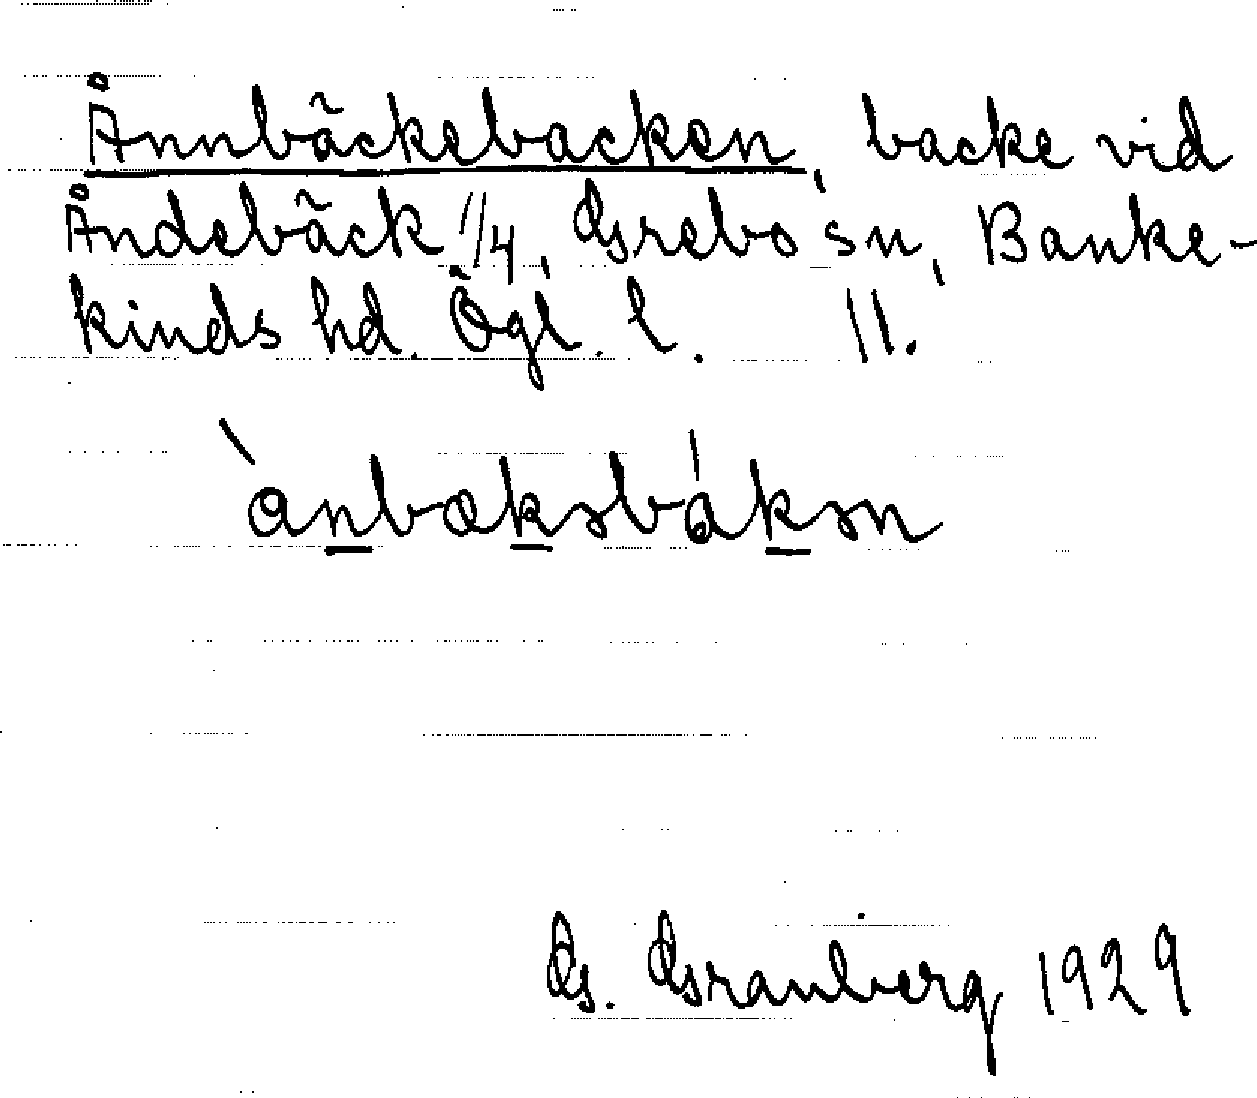 Ånnbäckebacken, backe vid
Åndebäck 1/4, Grebo sn, Banke-
kinds hd. Ögl. l. 11.
G. Granberg 1929